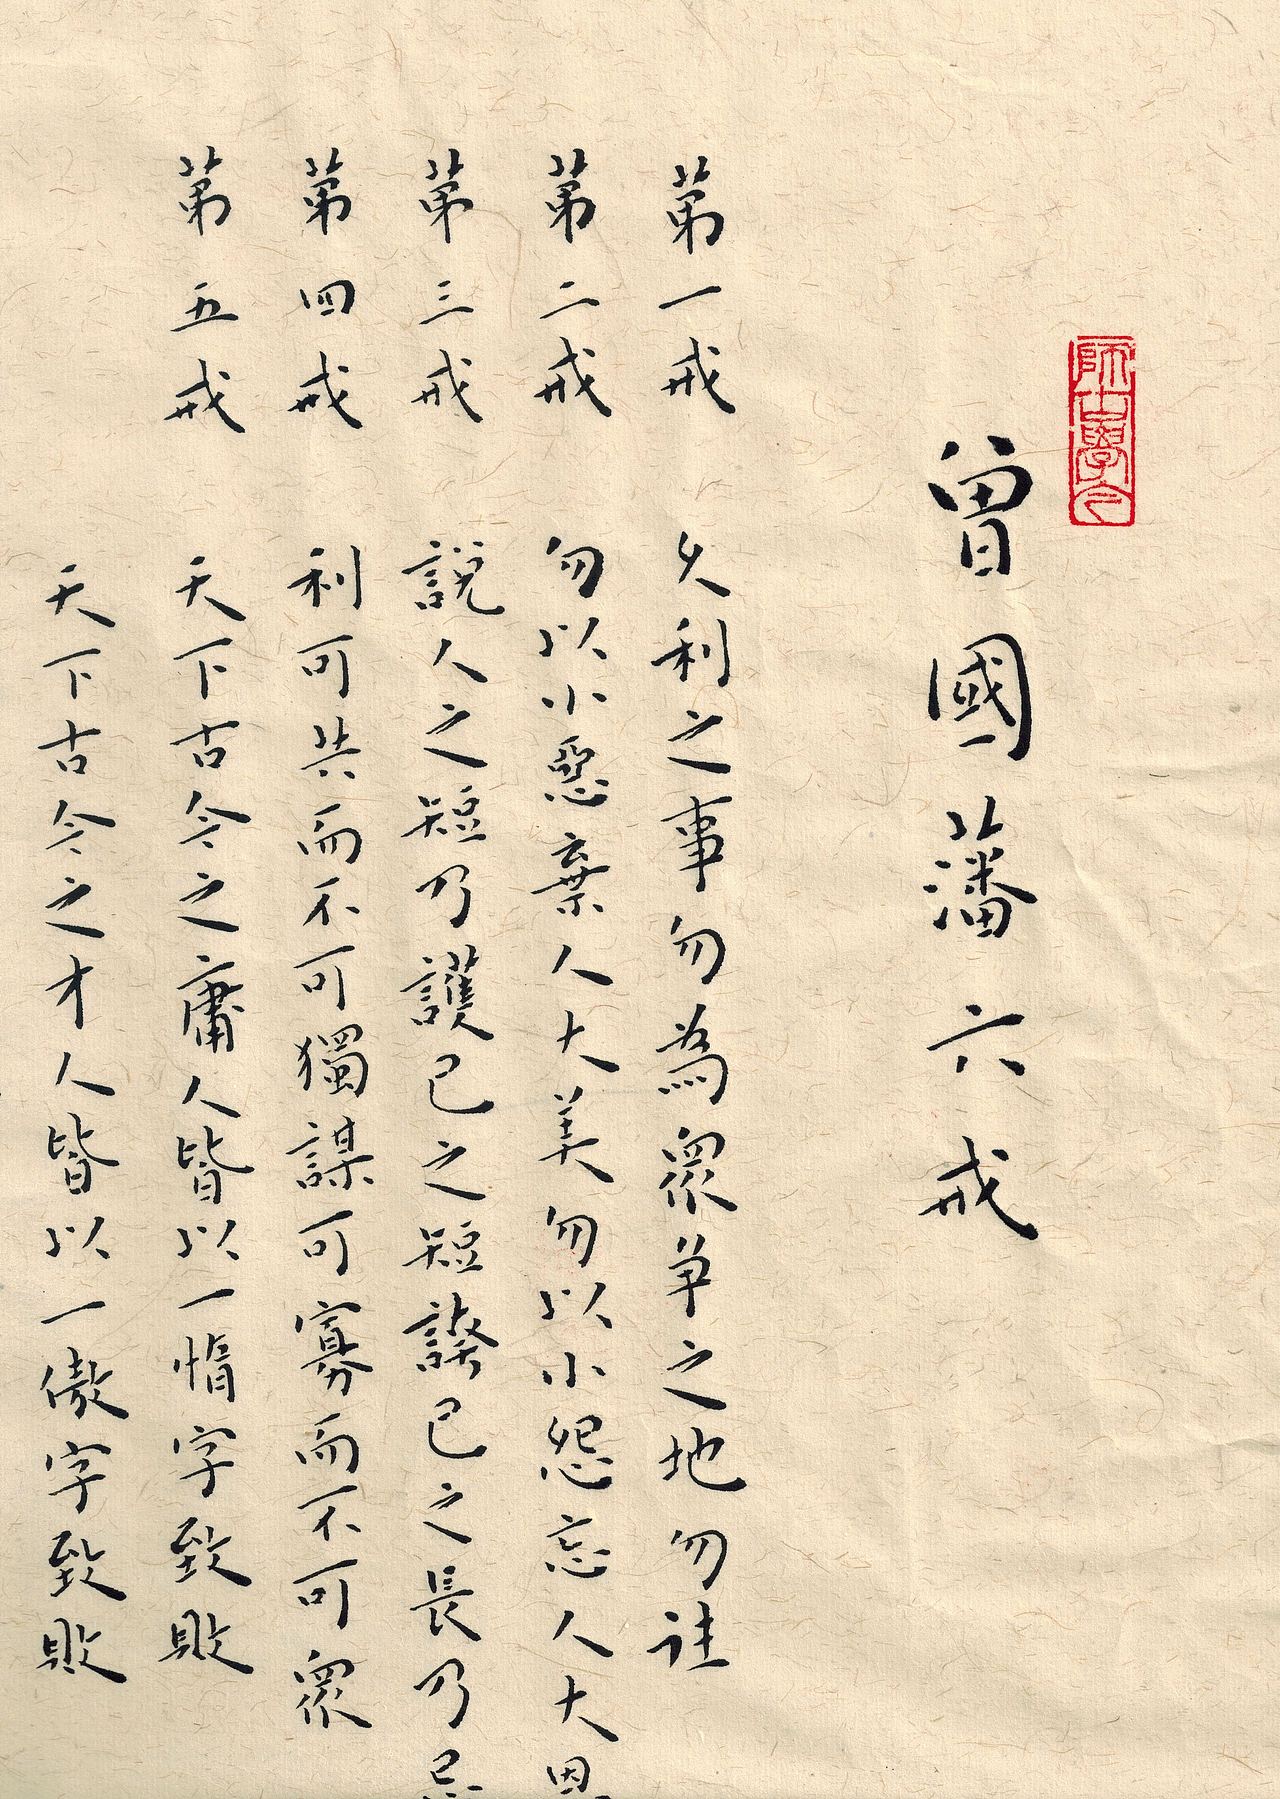 師古學今
曾國藩六戒
第一戒 久利之事勿為眾爭之地勿往
第二戒 勿以小惡棄人大美勿以小怨忘人大恩
第三戒 說人之短乃護己之短誇己之長乃忌
第四戒 利可共而不可獨謀可寡而不可眾
第五戒 天下古今之庸人皆以一惰字致敗
天下古今之才人皆以一傲字致敗